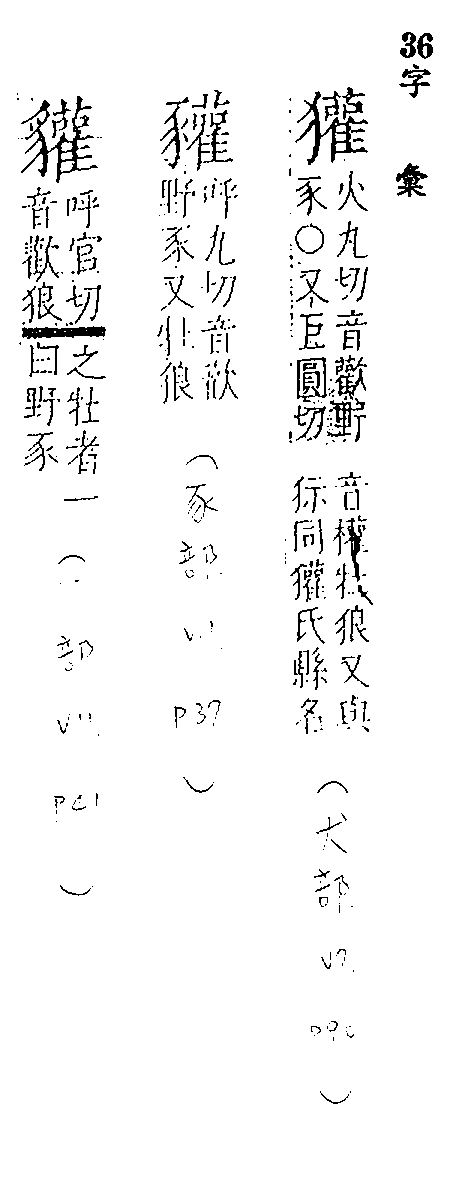 36字彙
獾
火丸切音歡野
豕○又巨圓切
音權牡狼又與
同獾氏縣名
（犬部
）
䝔
呼丸切音歡
野豕又牡狼
（豕部
P37
）
貛
呼官切
音歡狼
之牡者一
曰野豕
（
部
）